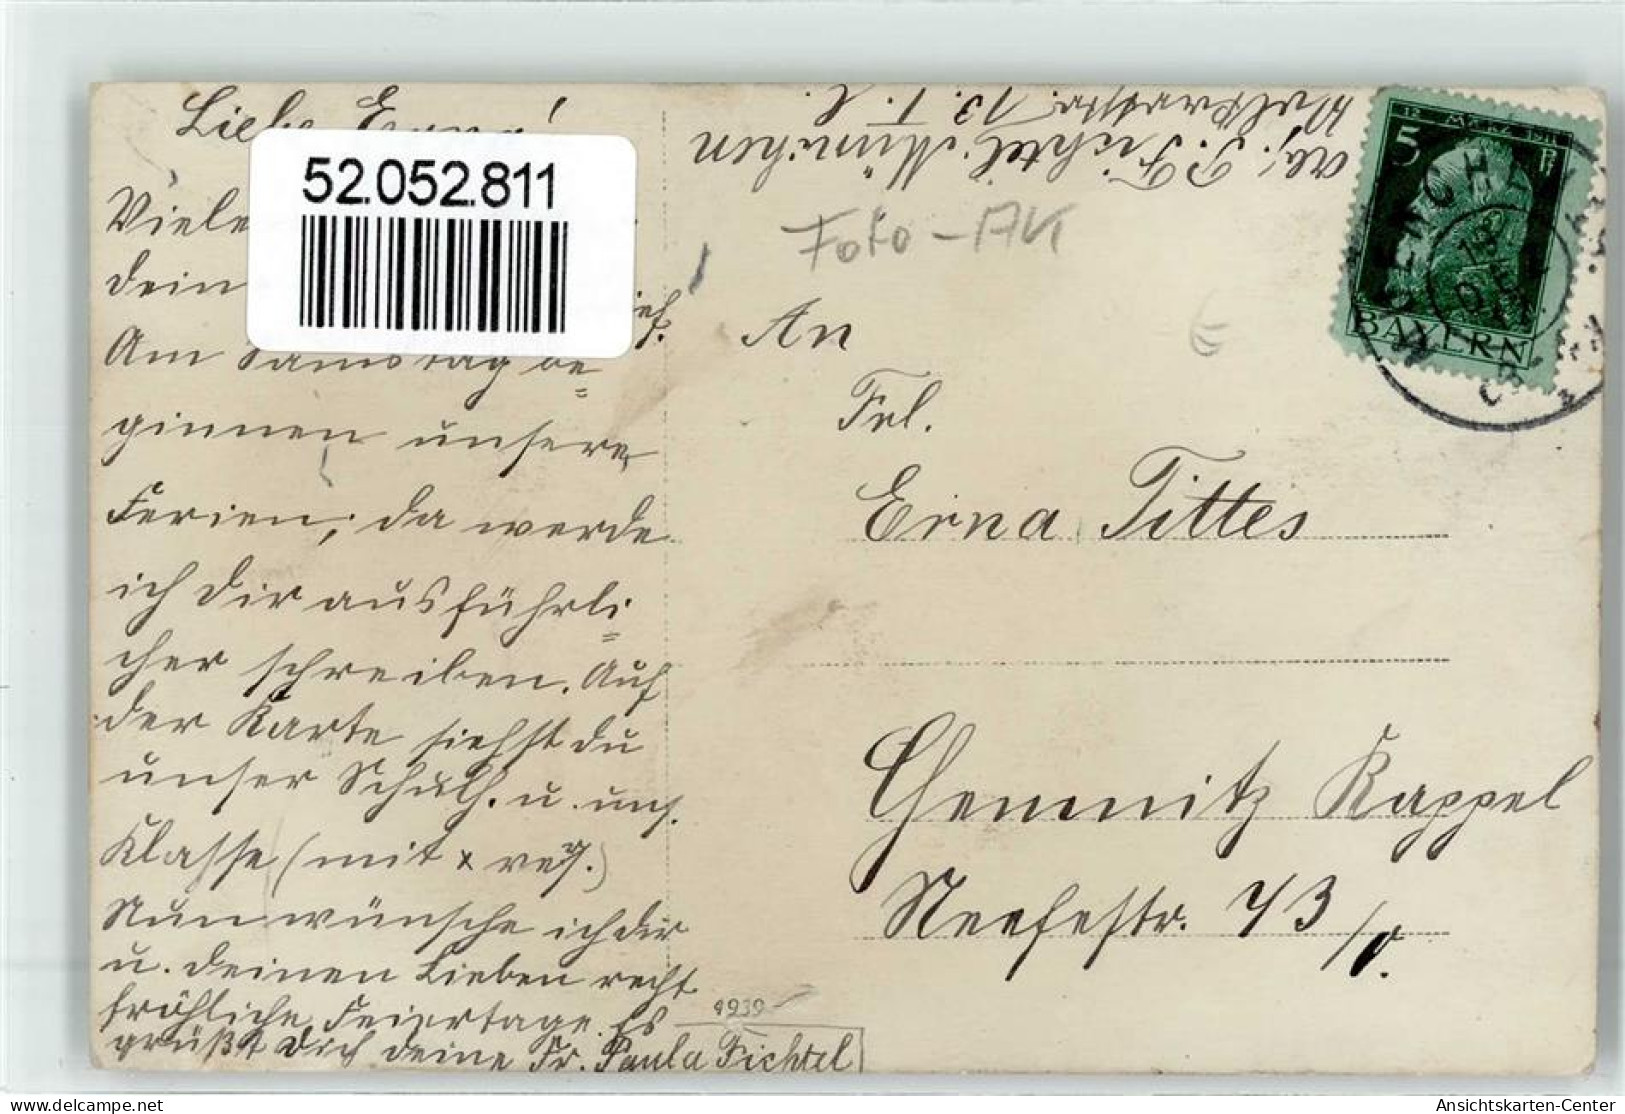 Liebe Erna!
52.052.811
Viele
dein
ief.
Am Samstag be=
ginnen unsere
Ferien, da werde
ich dir ausführli=
cher schreiben. Auf
der Karte siehst du
unser Schulh. u. uns.
Klasse (mit x
Nun wünsche ich dir
u. deinen Lieben recht
fröhliche Feiertage. Es
grüßt Dich deine Fr. Paula Fichtel
1939
P. Fichtel. München
13. I. l.
Foto-AK
12. MÄRZ 1911
5
BAYERN
An
Frl.
Erna Tittes
Chemnitz Kappel
Neefestr. 43/0.
delcampe.net
Ansichtskarten-Center